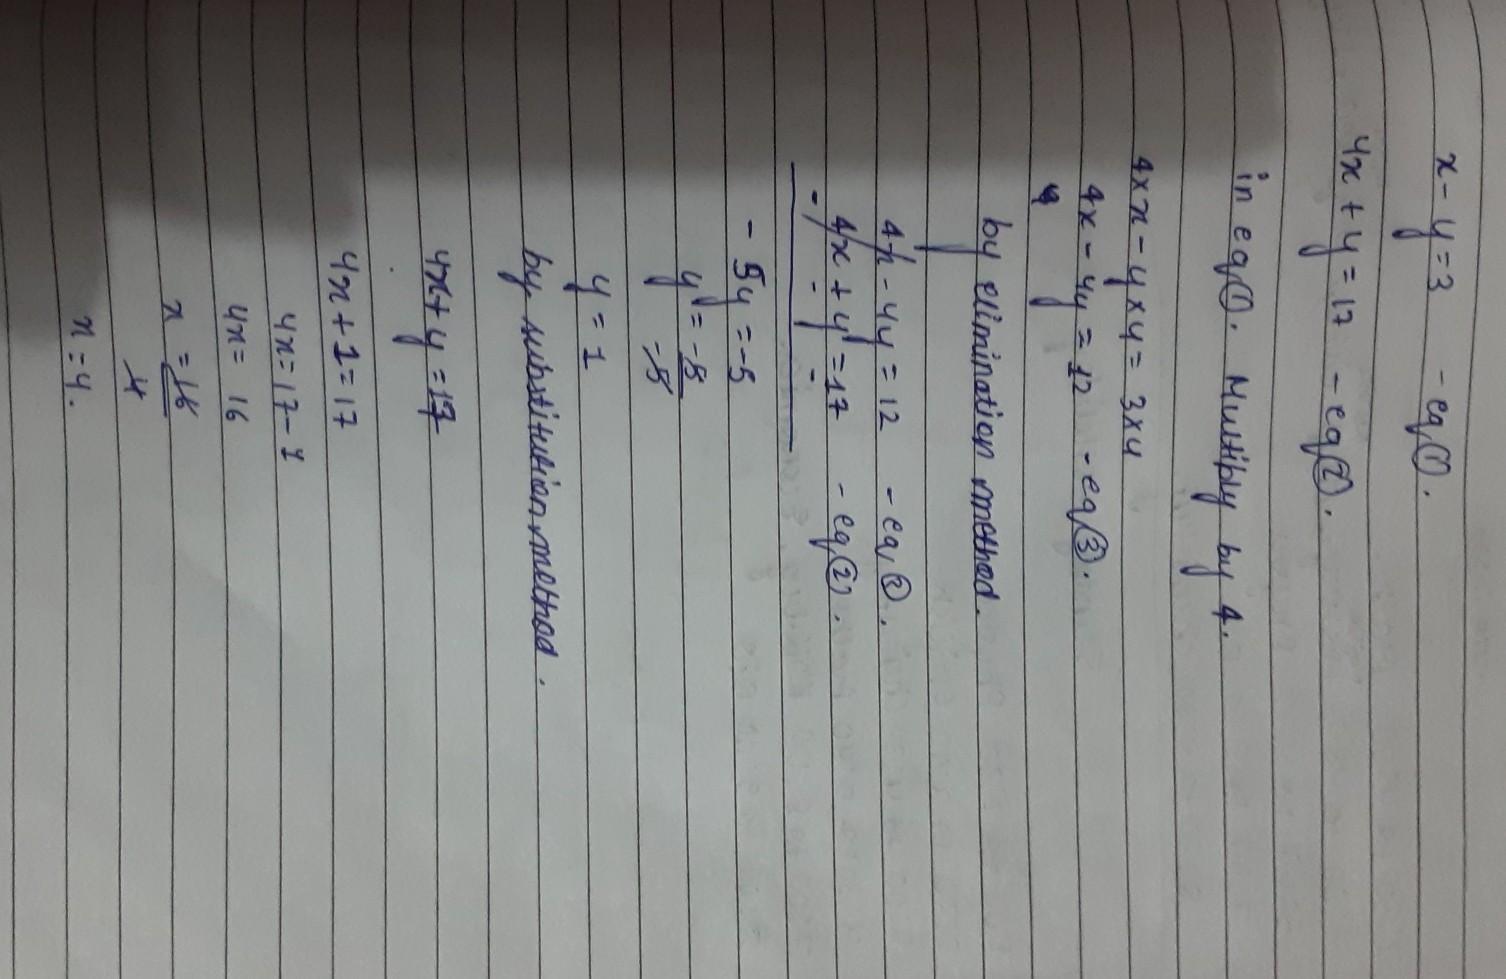 x - y = 3 - eq ①.
4x + y = 17 - eq ②.
in eq ①. Multiply by 4.
4 x x - y x 4 = 3 x 4
4x - 4y = 12 - eq ③.
by elimination method.
4x - 4y = 12 - eq ②.
4x + y = 17 - eq ②.
- - -
- 5y = -5
y = -5
-5
y = 1
by substitution method.
4x + y = 17
4x + 1 = 17
4x = 17 - 1
4x = 16
x = 16
4
x = 4.